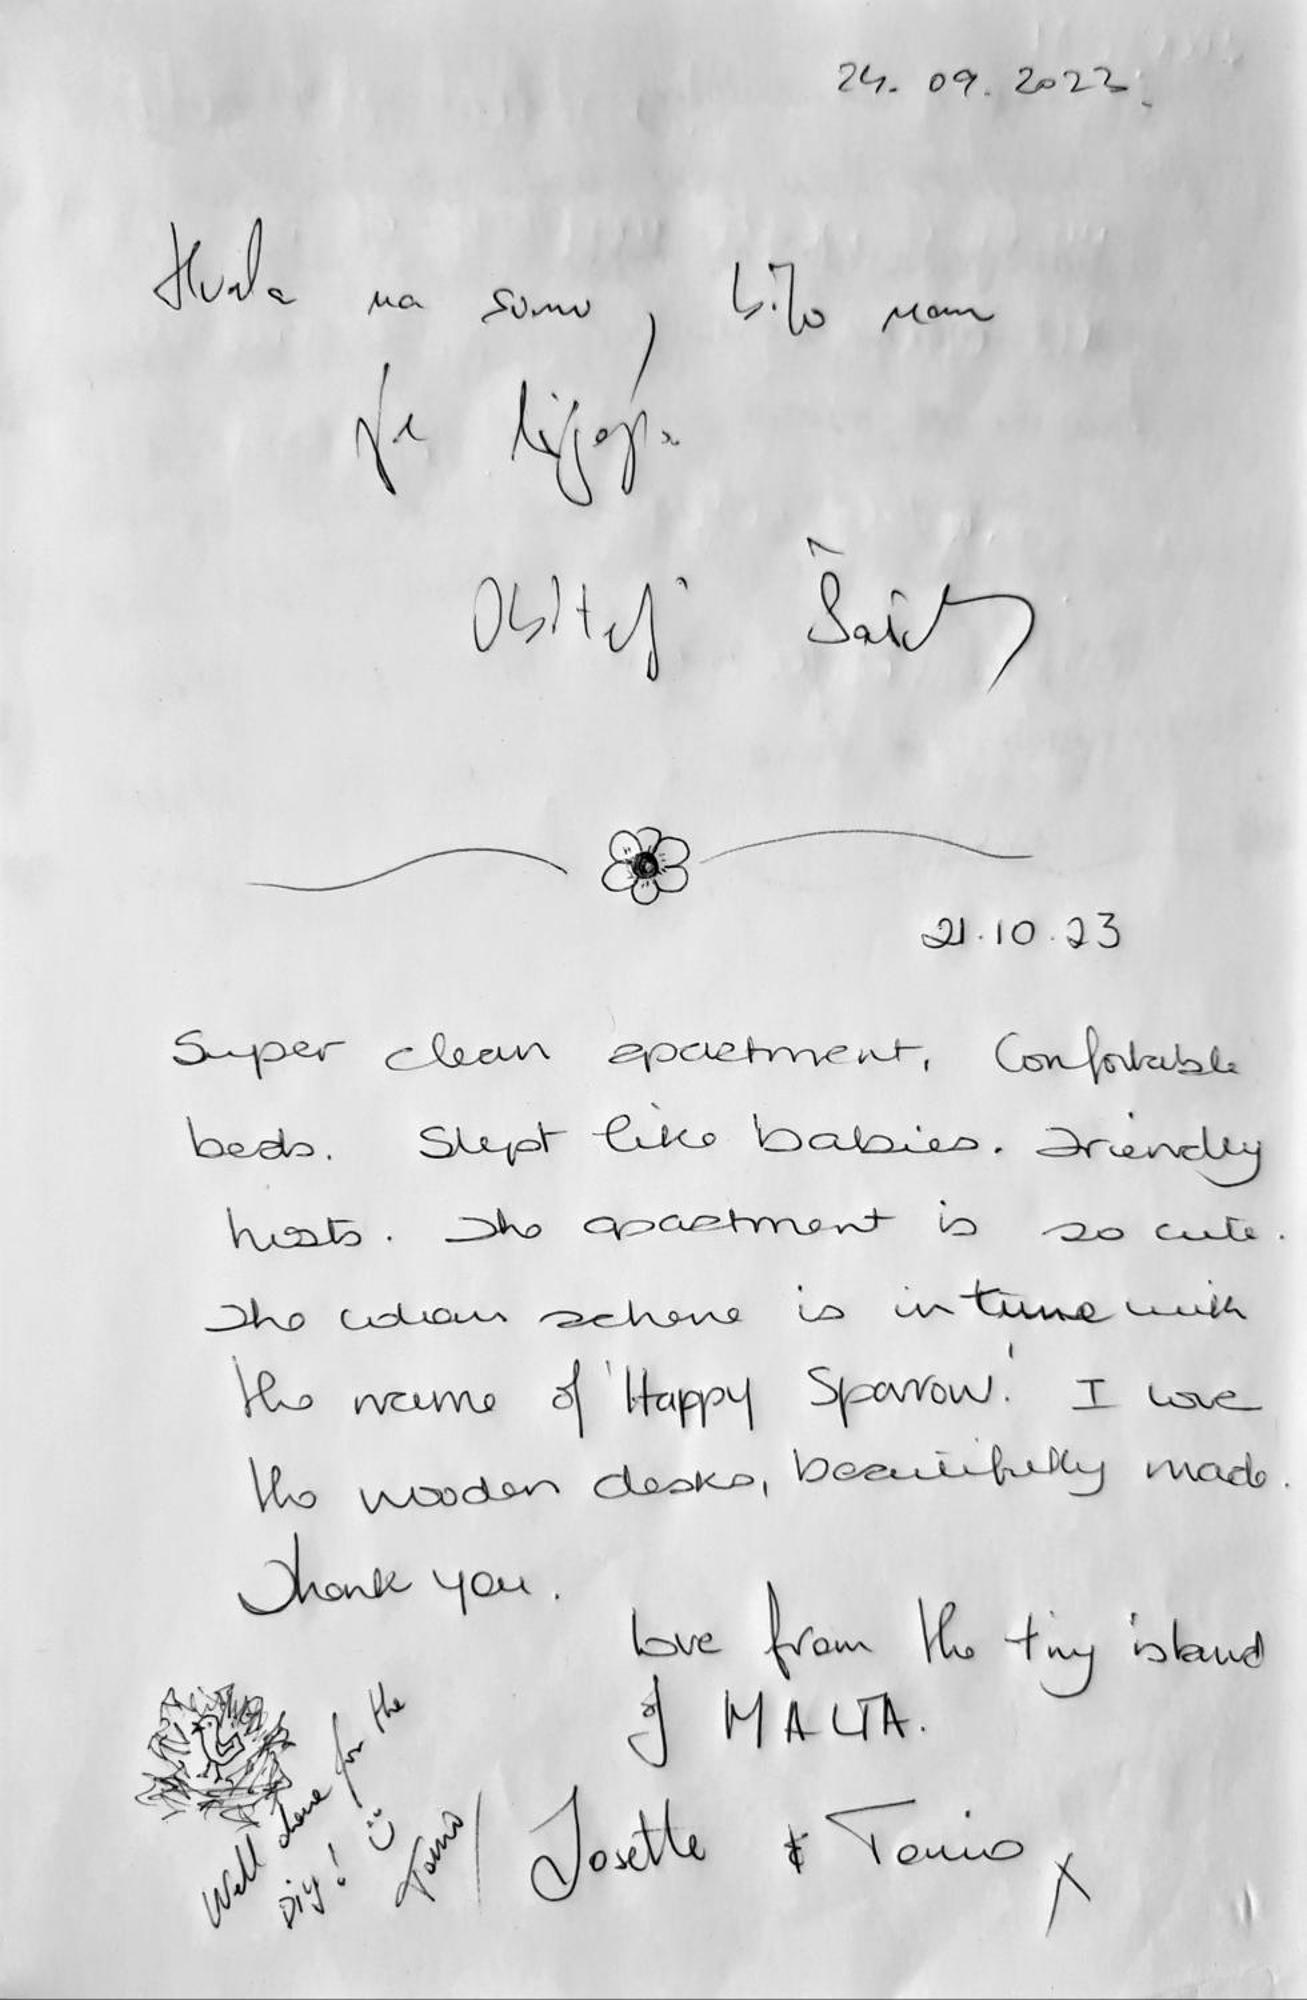 24. 09. 2023.
Hvala na svemu, bilo nam
je lijepo
Obitelj
21.10.23
Super clean apartment, Confortable
beds. Slept like babies. Friendly
hosts. The apartment is so cute.
The colour scheme is in tune with
the name of 'Happy Sparrow'. I love
the wooden desks, beautifully made.
Thank you.
Love from the tiny island
of MALTA.
Josette & Tonio x
Well done for the
DIY! :)
Tonio